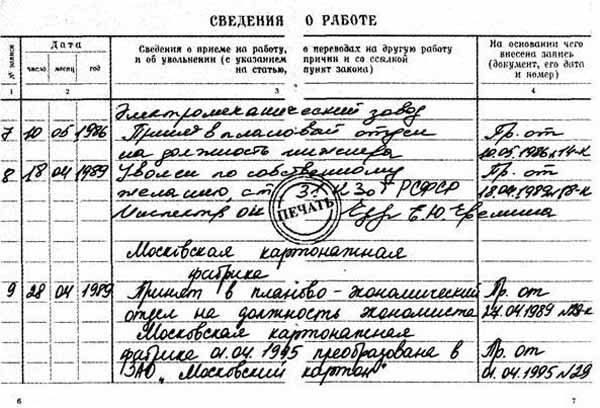 СВЕДЕНИЯ О РАБОТЕ
№ записи
Дата
число месяц год
Сведения о приеме на работу, о переводах на другую работу
и об увольнении (с указанием причин и со ссылкой
на статью, пункт закона)
На основании чего
внесена запись
(документ, его дата
и номер)
1 2 3 4
Электромеханический завод
7 10 05 1986 Принят в плановый отдел Пр. от
на должность инженера 10.05.1986 №14-К
8 18 04 1989 Уволен по собственному Пр. от
желанию, ст. 31 КЗоТ РСФСР 18.04.1989 №18-К
Инспектор ОК Е.Ю. Еремина
ПЕЧАТЬ
Московская картонажная
фабрика
9 28 04 1989 Принят в планово-экономический Пр. от
отдел на должность экономиста 27.04.1989 №29-к
Московская картонажная
фабрика 01.04.1995 преобразована в Пр. от
ЗАО „Московский картон" 01.04.1995 №29
6 7